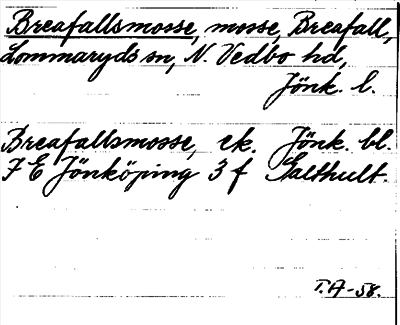 Breafallsmosse, mosse, Breafall,
Lommaryds sn, N. Vedbo hd,
Jönk. l.
Breafallsmosse, ek. Jönk. bl.
7 E Jönköping 3 f Galthult.
T.A-58.